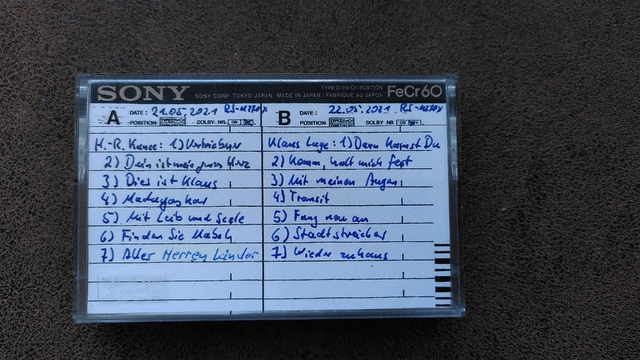 SONY
TYPE III (FeCr) POSITION
SONY CORP. TOKYO JAPAN MADE IN JAPAN · FABRIQUÉ AU JAPON
FeCr60
A DATE: 21.05.2021 RS-M270X
POSITION DOLBY NR.
H.-R. Kunze: 1)
2) Dein ist mein ganzes Herz
3) Dies ist Klaus
4) Madagaskar
5) Mit Leib und Seele
6) Finden Sie Mabel
7) Aller Herren Länder
B DATE: 22.05.2021 RS-M270X
POSITION DOLBY NR.
Klaus Lage: 1) Dann kommst Du
2) Komm, halt mich fest
3) Mit meinen Augen
4) Transit
5) Fang neu an
6) Stadtstreicher
7) Wieder zuhaus